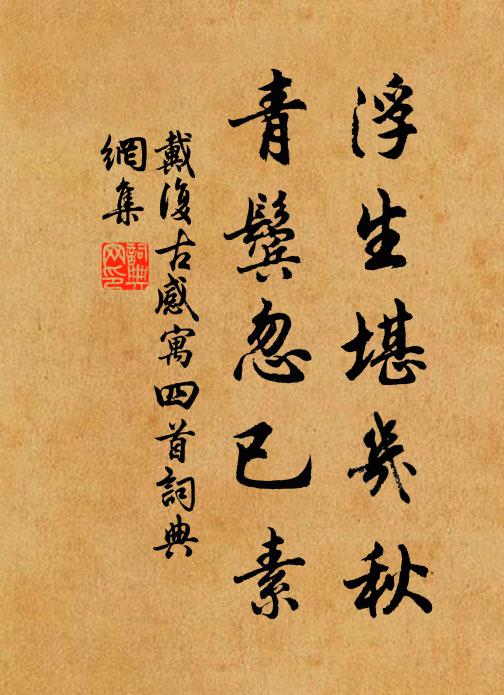 浮生堪幾秋
青鬢忽已素
戴復古感寓四首詞典
網集
詞典
网印